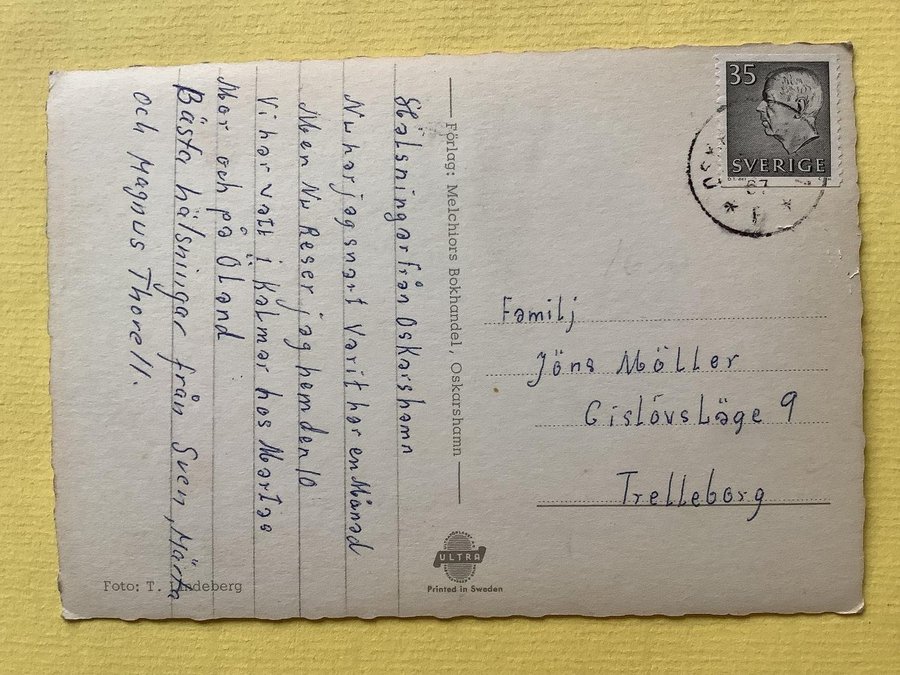 Hälsningar från Oskarshamn
Nu har jag snart varit här en Månad
Men Nu Reser jag hem den 10
Vi har vatt i Kalmar hos Martas
Mor och på Öland
Bästa hälsningar från Sven, Märta
och Magnus Thorell.
Förlag: Melchiors Bokhandel, Oskarshamn
Foto: T. Lindeberg
ULTRA
Printed in Sweden
35
SVERIGE
67
Familj
Jöns Möller
Gislövsläge 9
Trelleborg